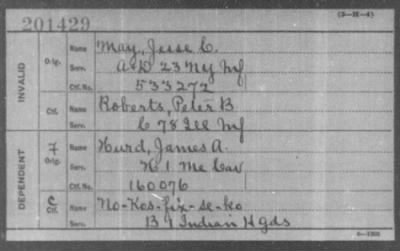 (3-H-4)
201429
INVALID
Orig.
Name May, Jesse C.
Serv. A & D 23 NY Inf
Ctf. No. 533272
Ctf.
Name Roberts, Peter B
Serv. C 78 Ill Inf
DEPENDENT
7
Orig.
Name Hurd, James A.
Serv. H 1 Me Cav
Ctf. No. 160076
C
Ctf.
Name No-Kos-fix-se-ko
Serv. B 1 Indian H gds